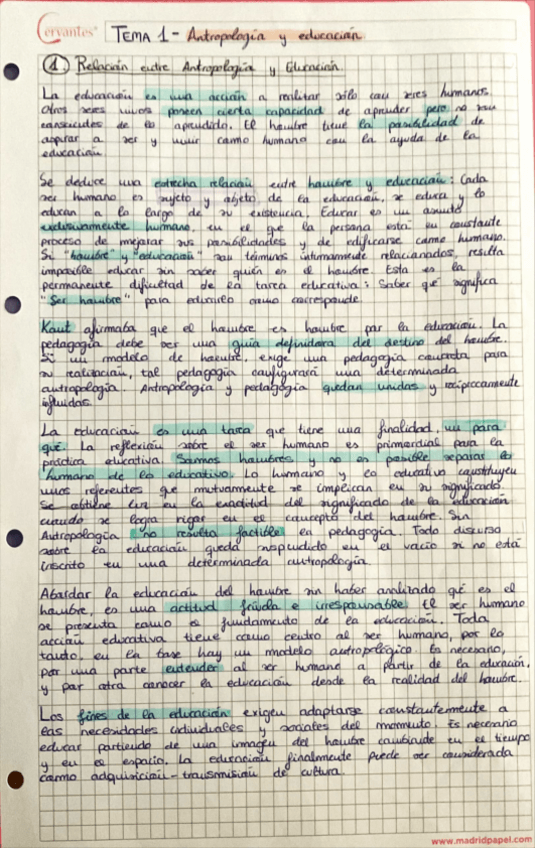 Cervantes
TEMA 1 - Antropología y educación
1 Relación entre Antropología y Educación.
La educación es una acción a realizar sólo con seres humanos.
Otros seres vivos poseen cierta capacidad de aprender pero no son
conscientes de lo aprendido. El hombre tiene la posibilidad de
aspirar a ser y vivir como humano con la ayuda de la
educación.
Se deduce una estrecha relación entre hombre y educación: Cada
ser humano es sujeto y objeto de la educación, se educa y lo
educan a lo largo de su existencia. Educar es un asunto
exclusivamente humano, en el que la persona está en constante
proceso de mejorar sus posibilidades y de edificarse como humano.
Si "hombre" y "educación" son términos íntimamente relacionados, resulta
imposible educar sin saber quién es el hombre. Esta es la
permanente dificultad de la tarea educativa: Saber qué significa
"Ser hombre" para educarlo como corresponde.
Kant afirmaba que el hombre es hombre por la educación. La
pedagogía debe ser una guía definidora del destino del hombre.
Si un modelo de hombre, exige una pedagogía concreta para
su realización, tal pedagogía configurará una determinada
antropología. Antropología y pedagogía quedan unidas y recíprocamente
influidas.
La educación es una tarea que tiene una finalidad, un para
qué. La reflexión sobre el ser humano es primordial para la
práctica educativa. Somos hombres y no es posible separar lo
humano de lo educativo. Lo humano y lo educativo constituyen
unos referentes que mutuamente se implican en su significado.
Se obtiene luz en la exactitud del significado de la educación
cuando se logra rigor en el concepto del hombre. Sin
Antropología no resulta factible en pedagogía. Todo discurso
sobre la educación queda suspendido en el vacío si no está
inscrito en una determinada antropología.
Abordar la educación del hombre sin haber analizado qué es el
hombre, es una actitud frívola e irresponsable. El ser humano
se presenta como el fundamento de la educación. Toda
acción educativa tiene como centro al ser humano, por lo
tanto, en la base hay un modelo antropológico. Es necesario,
por una parte entender al ser humano a partir de la educación,
y por otra conocer la educación desde la realidad del hombre.
Los fines de la educación exigen adaptarse constantemente a
las necesidades individuales y sociales del momento. Es necesario
educar partiendo de una imagen del hombre cambiante en el tiempo
y en el espacio. La educación finalmente puede ser considerada
como adquisición-transmisión de cultura.
www.madridpapel.com